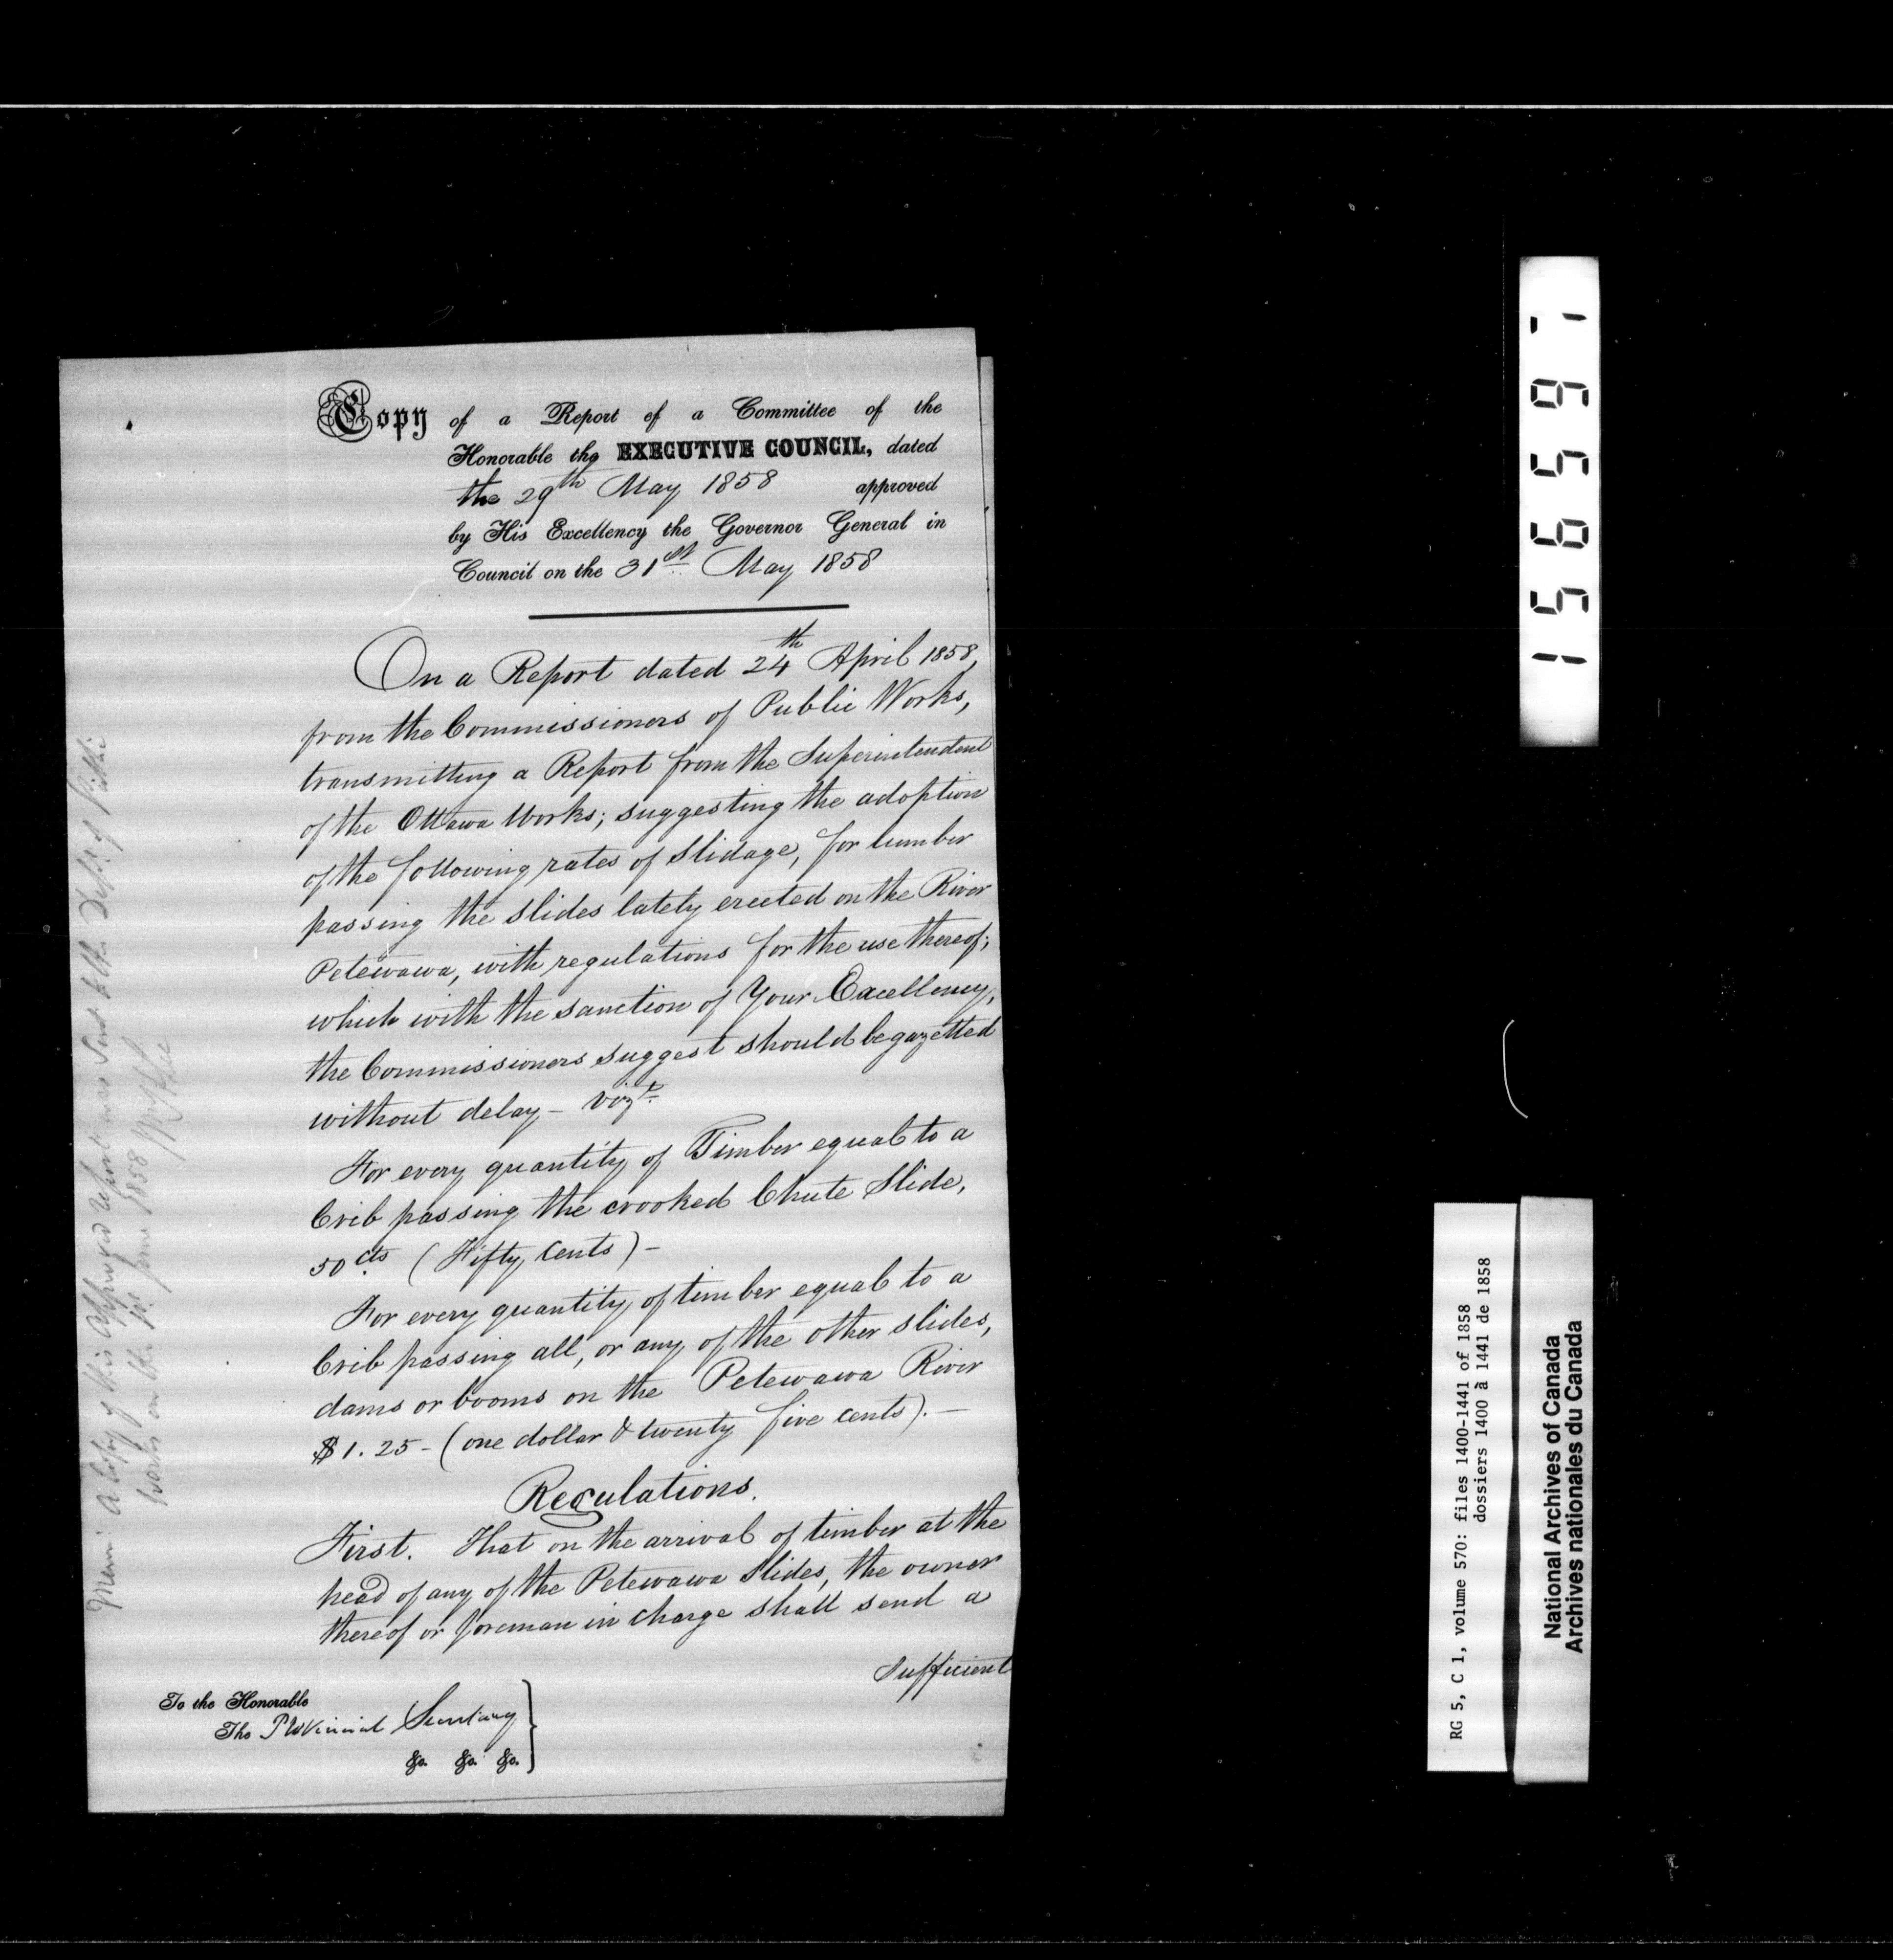 Copy of a Report of a Committee of the
Honorable the EXECUTIVE COUNCIL, dated
the 29th May 1858 approved
by His Excellency the Governor General in
Council on the 31st May 1858
On a Report dated 24th April 1858,
from the Commissioners of Public Works,
transmitting a Report from the Superintendent
of the Ottawa Works; suggesting the adoption
of the following rates of Slidage, for lumber
passing the slides lately erected on the River
Petewawa, with regulations for the use thereof;
which with the sanction of Your Excellency,
the Commissioners suggest should be gazetted
without delay - vizt.
For every quantity of Timber equal to a
Crib passing the crooked Chute Slide,
50 cts (Fifty Cents) -
For every quantity of timber equal to a
Crib passing all, or any of the other slides,
dams or booms on the Petewawa River
$1.25 - (one dollar & twenty five cents). -
Regulations.
First. That on the arrival of timber at the
head of any of the Petewawa Slides, the owner
thereof or foreman in charge shall send a
sufficient
To the Honorable
The Provincial Secretary
&c. &c. &c.
Mem: A Copy of this approved report was Sent to the Dept. of Public
Works on the June 1858
156597
RG 5, C 1, volume 570: files 1400-1441 of 1858
dossiers 1400 à 1441 de 1858
National Archives of Canada
Archives nationales du Canada